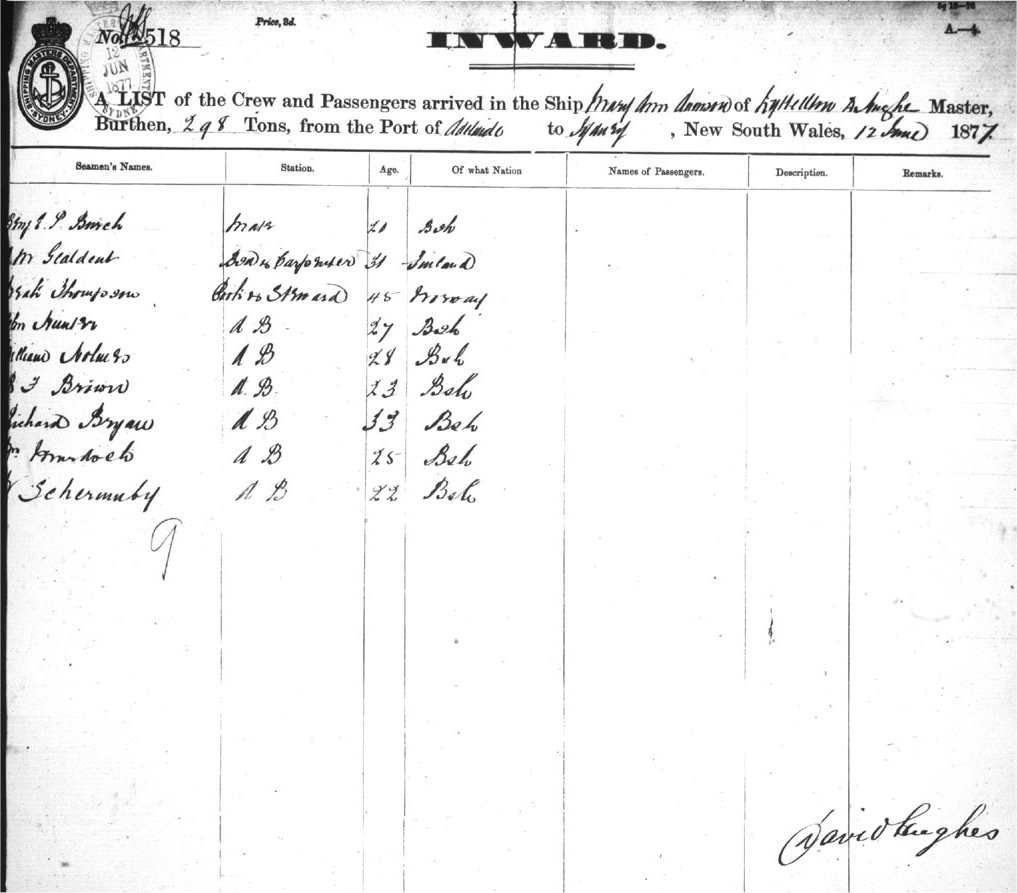 Price, 3d.
A.—4.
No. 518
INWARD.
SHIPPING MASTERS DEPARTMENT SYDNEY
12 JUN 1877
A LIST of the Crew and Passengers arrived in the Ship Mary Ann Annison of Lyttelton D. Hughes Master,
Burthen, 298 Tons, from the Port of Adelaide to Sydney, New South Wales, 12 June 1877
Seamen's Names. Station. Age. Of what Nation Names of Passengers. Description. Remarks.
P. Burch Mate Bsh
31 Finland
Thompson Cook & Steward 45 Norway
Hunter A B 27 Bsh
William Holmes A B 28 Bsh
F Brown A.B. 23 Bsh
Richard Bryan A B 33 Bsh
Murdoch A B 25 Bsh
A B 22 Bsh
9
David Hughes